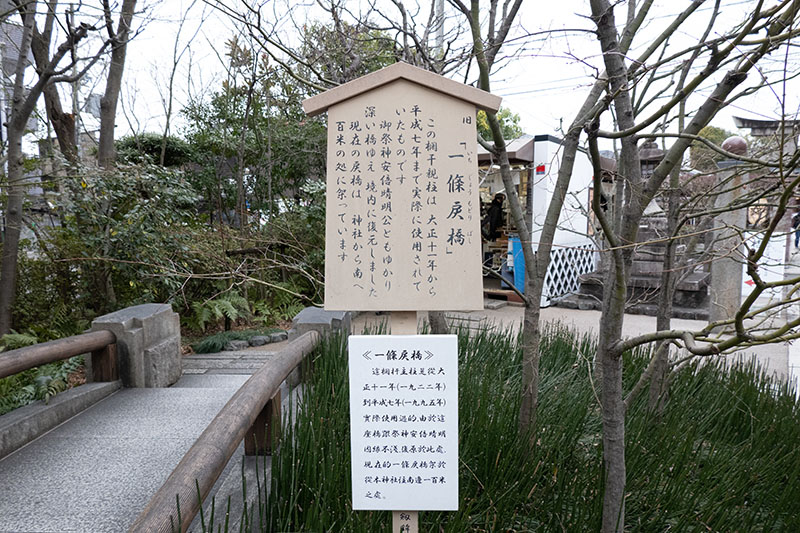 旧「一條戻橋」
いち じょう もどり ばし
この欄干親柱は 大正十一年から
平成七年まで実際に使用されて
いたものです
御祭神安倍晴明公ともゆかり
深い橋ゆえ 境内に復元しました
現在の戻橋は 神社から南へ
百米の処に架っています
≪一條戻橋≫
這欄杆主柱是從大
正十一年(一九二二年)
到平成七年(一九九五年)
實際使用過的.由於這
座橋跟祭神安倍晴明
因緣不淺,復原於此處.
現在的一條戻橋架於
從本神社往南邊一百米
之處.